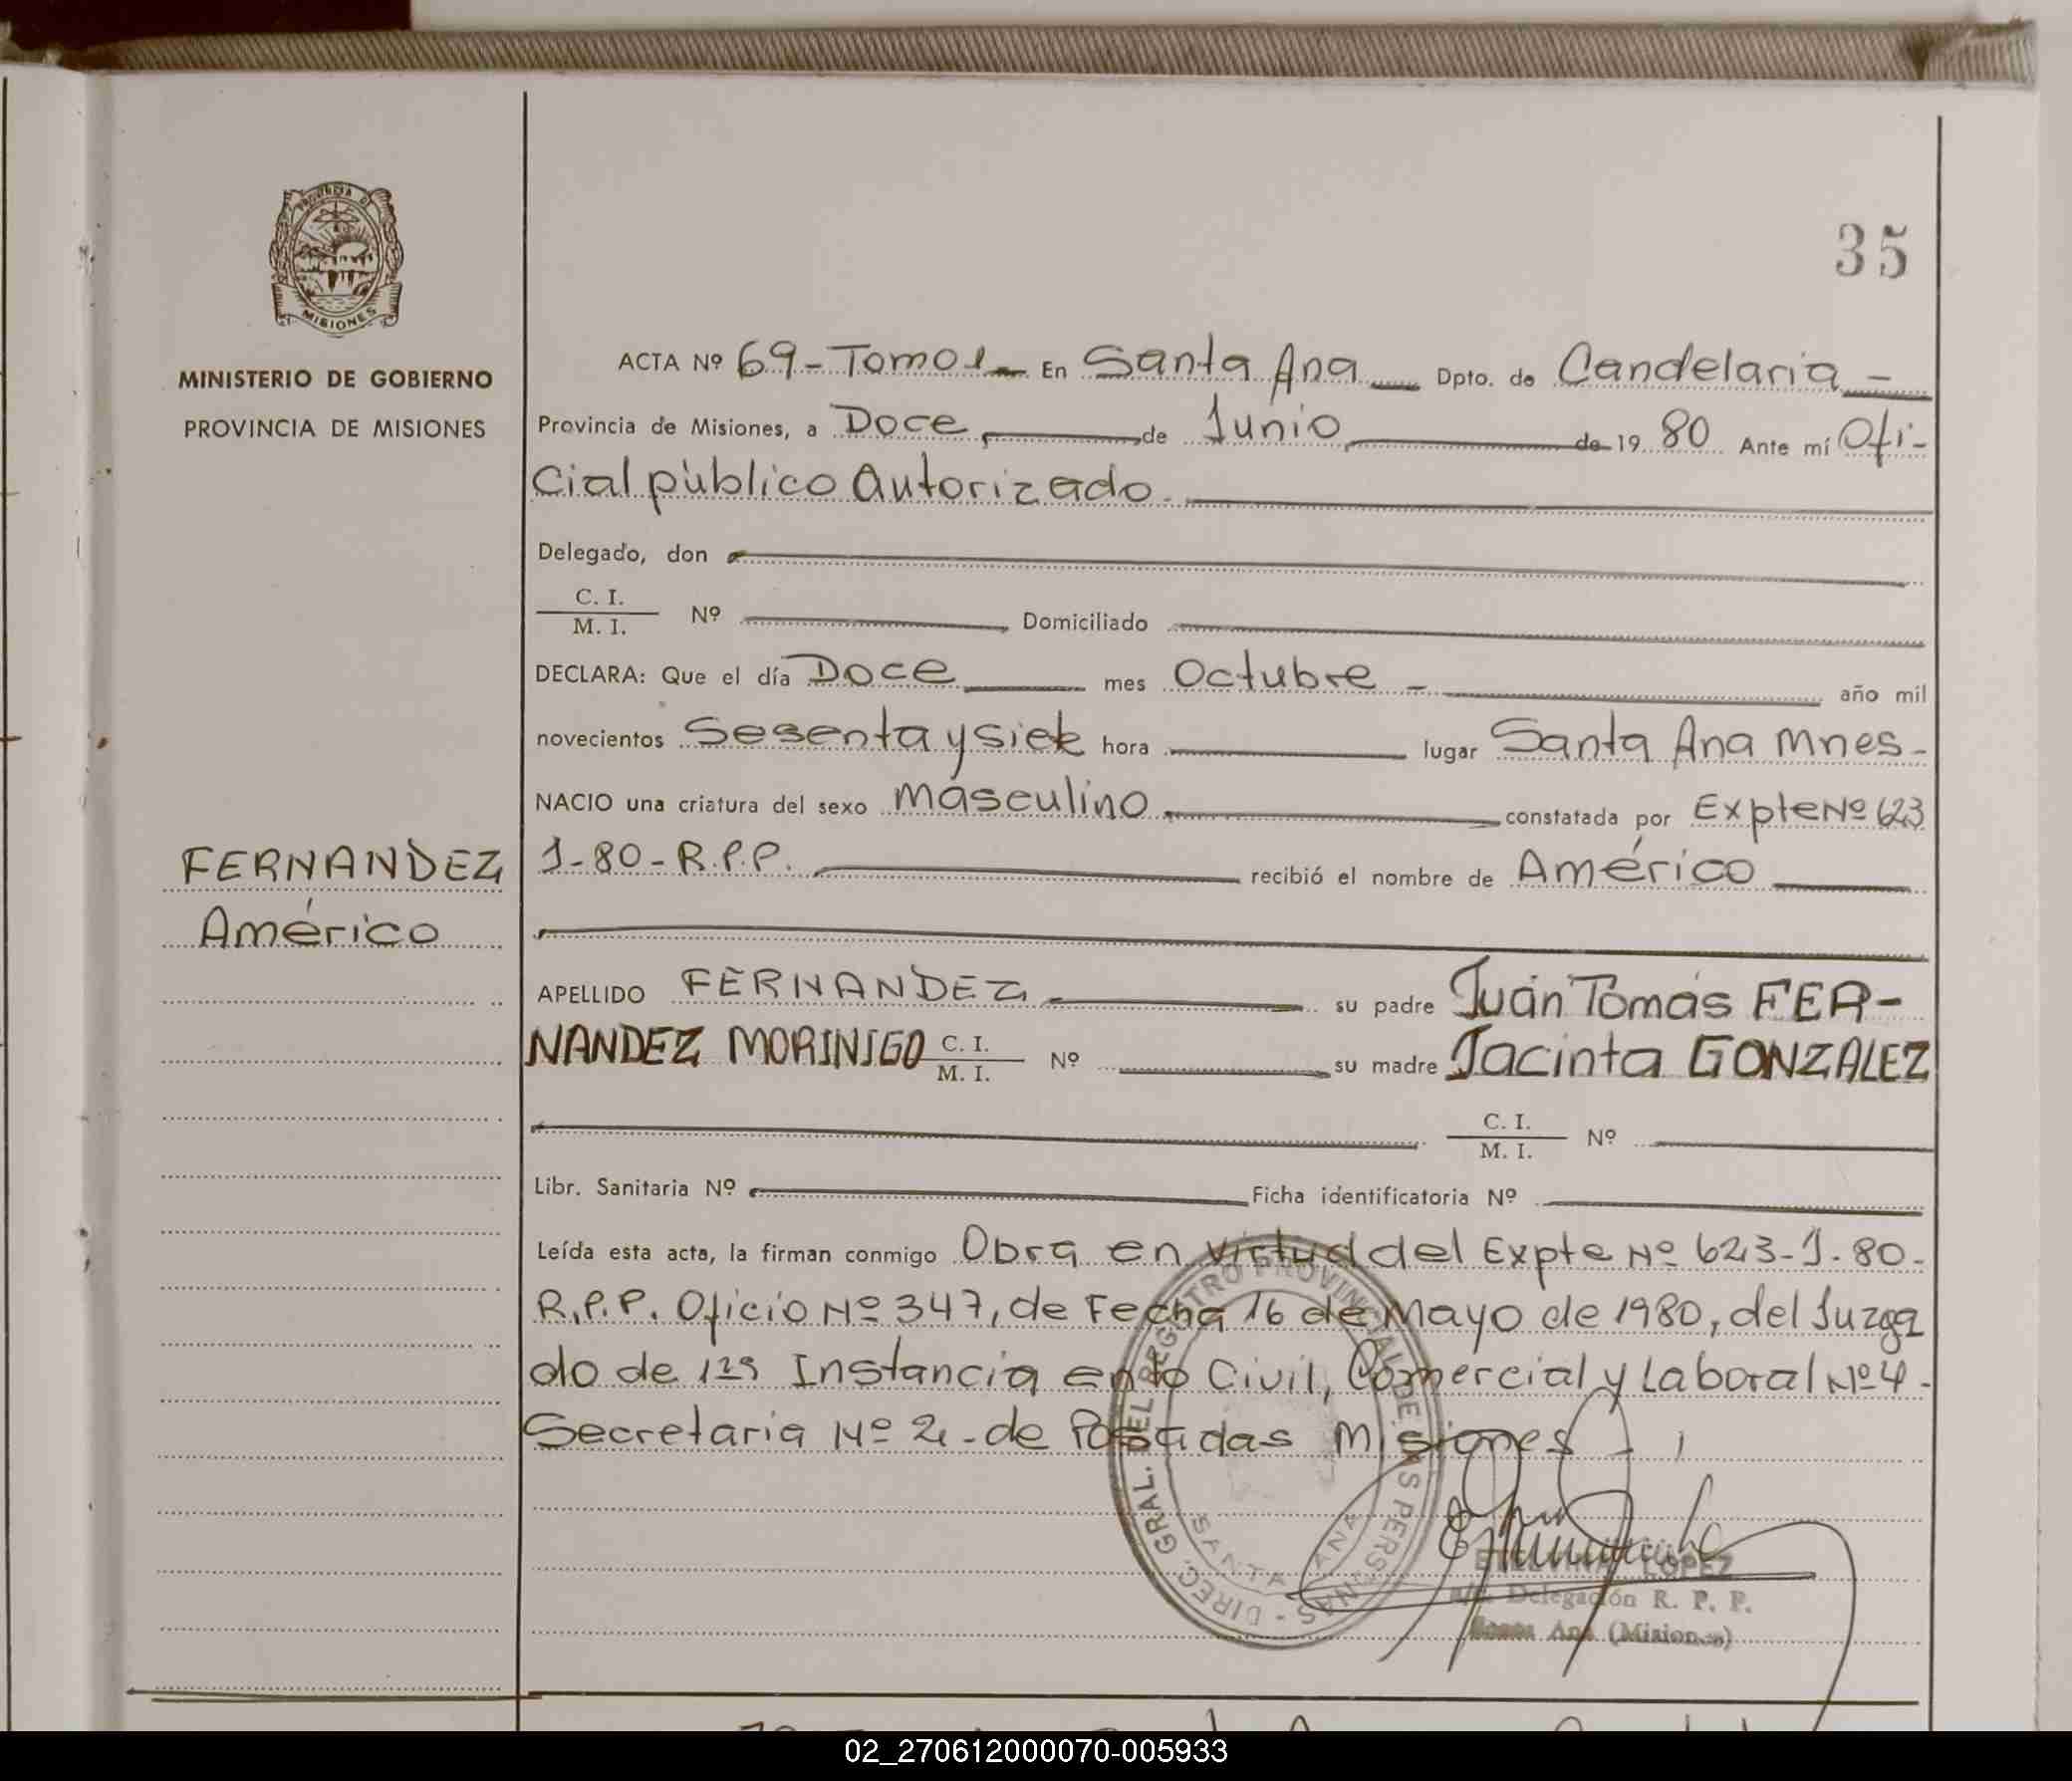 35
PROVINCIA DE
MISIONES
MINISTERIO DE GOBIERNO
PROVINCIA DE MISIONES
ACTA Nº 69-Tomo 1 En Santa Ana Dpto. de Candelaria -
Provincia de Misiones, a Doce de Junio de 19 80 Ante mí Ofi-
cial público Autorizado.
Delegado, don
C. I.
M. I. Nº Domiciliado
DECLARA: Que el día Doce mes Octubre - año mil
novecientos Sesenta y siete hora lugar Santa Ana Mnes-
NACIO una criatura del sexo Masculino constatada por Expte Nº 623
1-80-R.P.P. recibió el nombre de Américo
FERNANDEZ
Américo
APELLIDO FERNANDEZ su padre Juan Tomás FER-
NANDEZ MORINIGO C. I.
M. I. Nº su madre Jacinta GONZALEZ
C. I.
M. I. Nº
Libr. Sanitaria Nº Ficha identificatoria Nº
Leída esta acta, la firman conmigo Obra en virtud del Expte Nº 623-1-80-
R.P.P. Oficio Nº 347, de Fecha 16 de Mayo de 1980, del Juzga
do de 1ra Instancia en lo Civil, Comercial y Laboral Nº 4-
Secretaria Nº 2-de Posadas Misiones -
DIREC. GRAL. DEL REGISTRO PROVINCIAL DE LAS PERSONAS -
SANTA ANA
ETELVINA LOPEZ
Delegación R. P. P.
Santa Ana (Misiones)
02_270612000070-005933